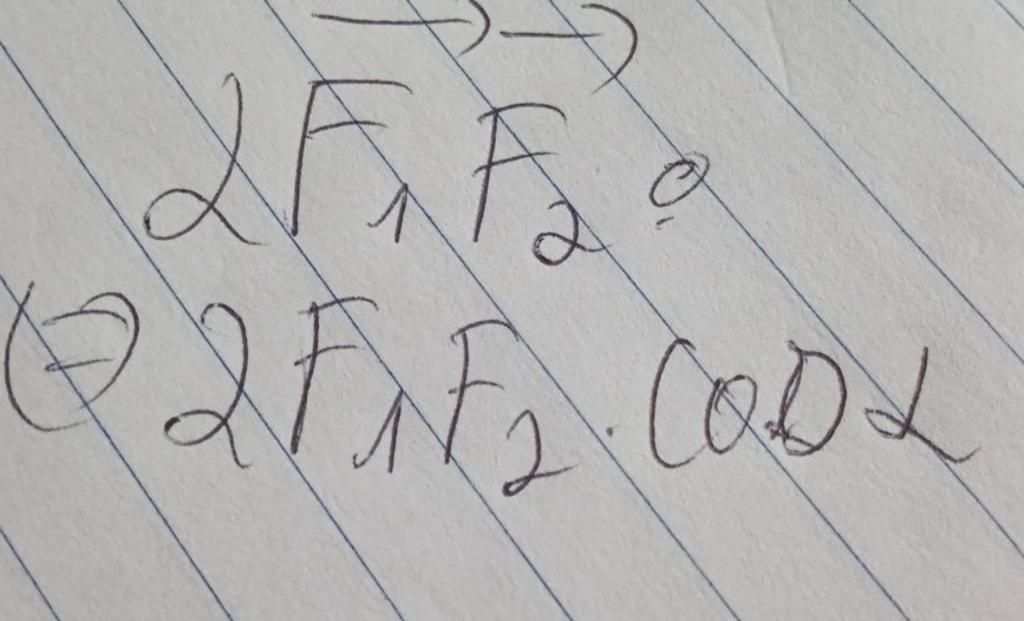 2F₁⃗F₂⃗ .
(=) 2F₁F₂ . cos α